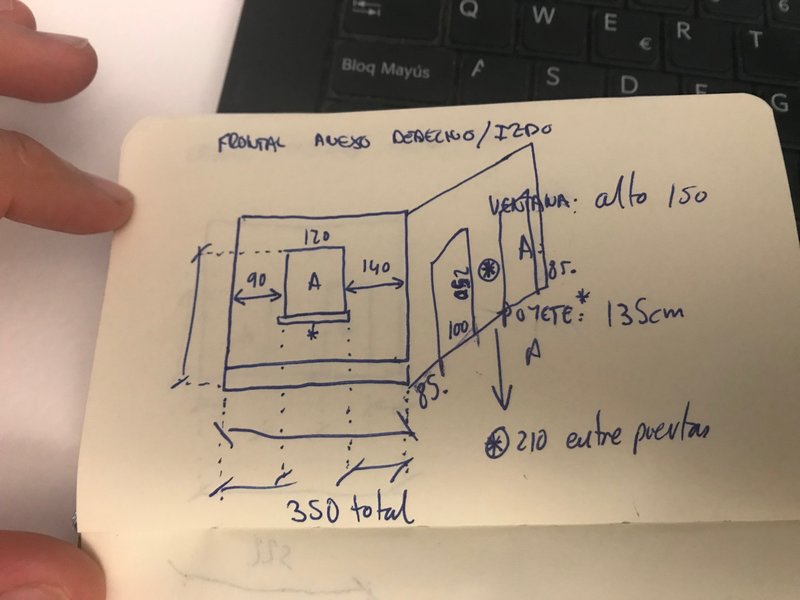 Q W E R T
€
Bloq Mayús A S D F G
FRONTAL ANEXO DERECHO/IZDO
VENTANA: alto 150
120
90 A 140
*
250
100
85.
A
85.
POYETE:* 135cm
A
* 210 entre puertas
350 total